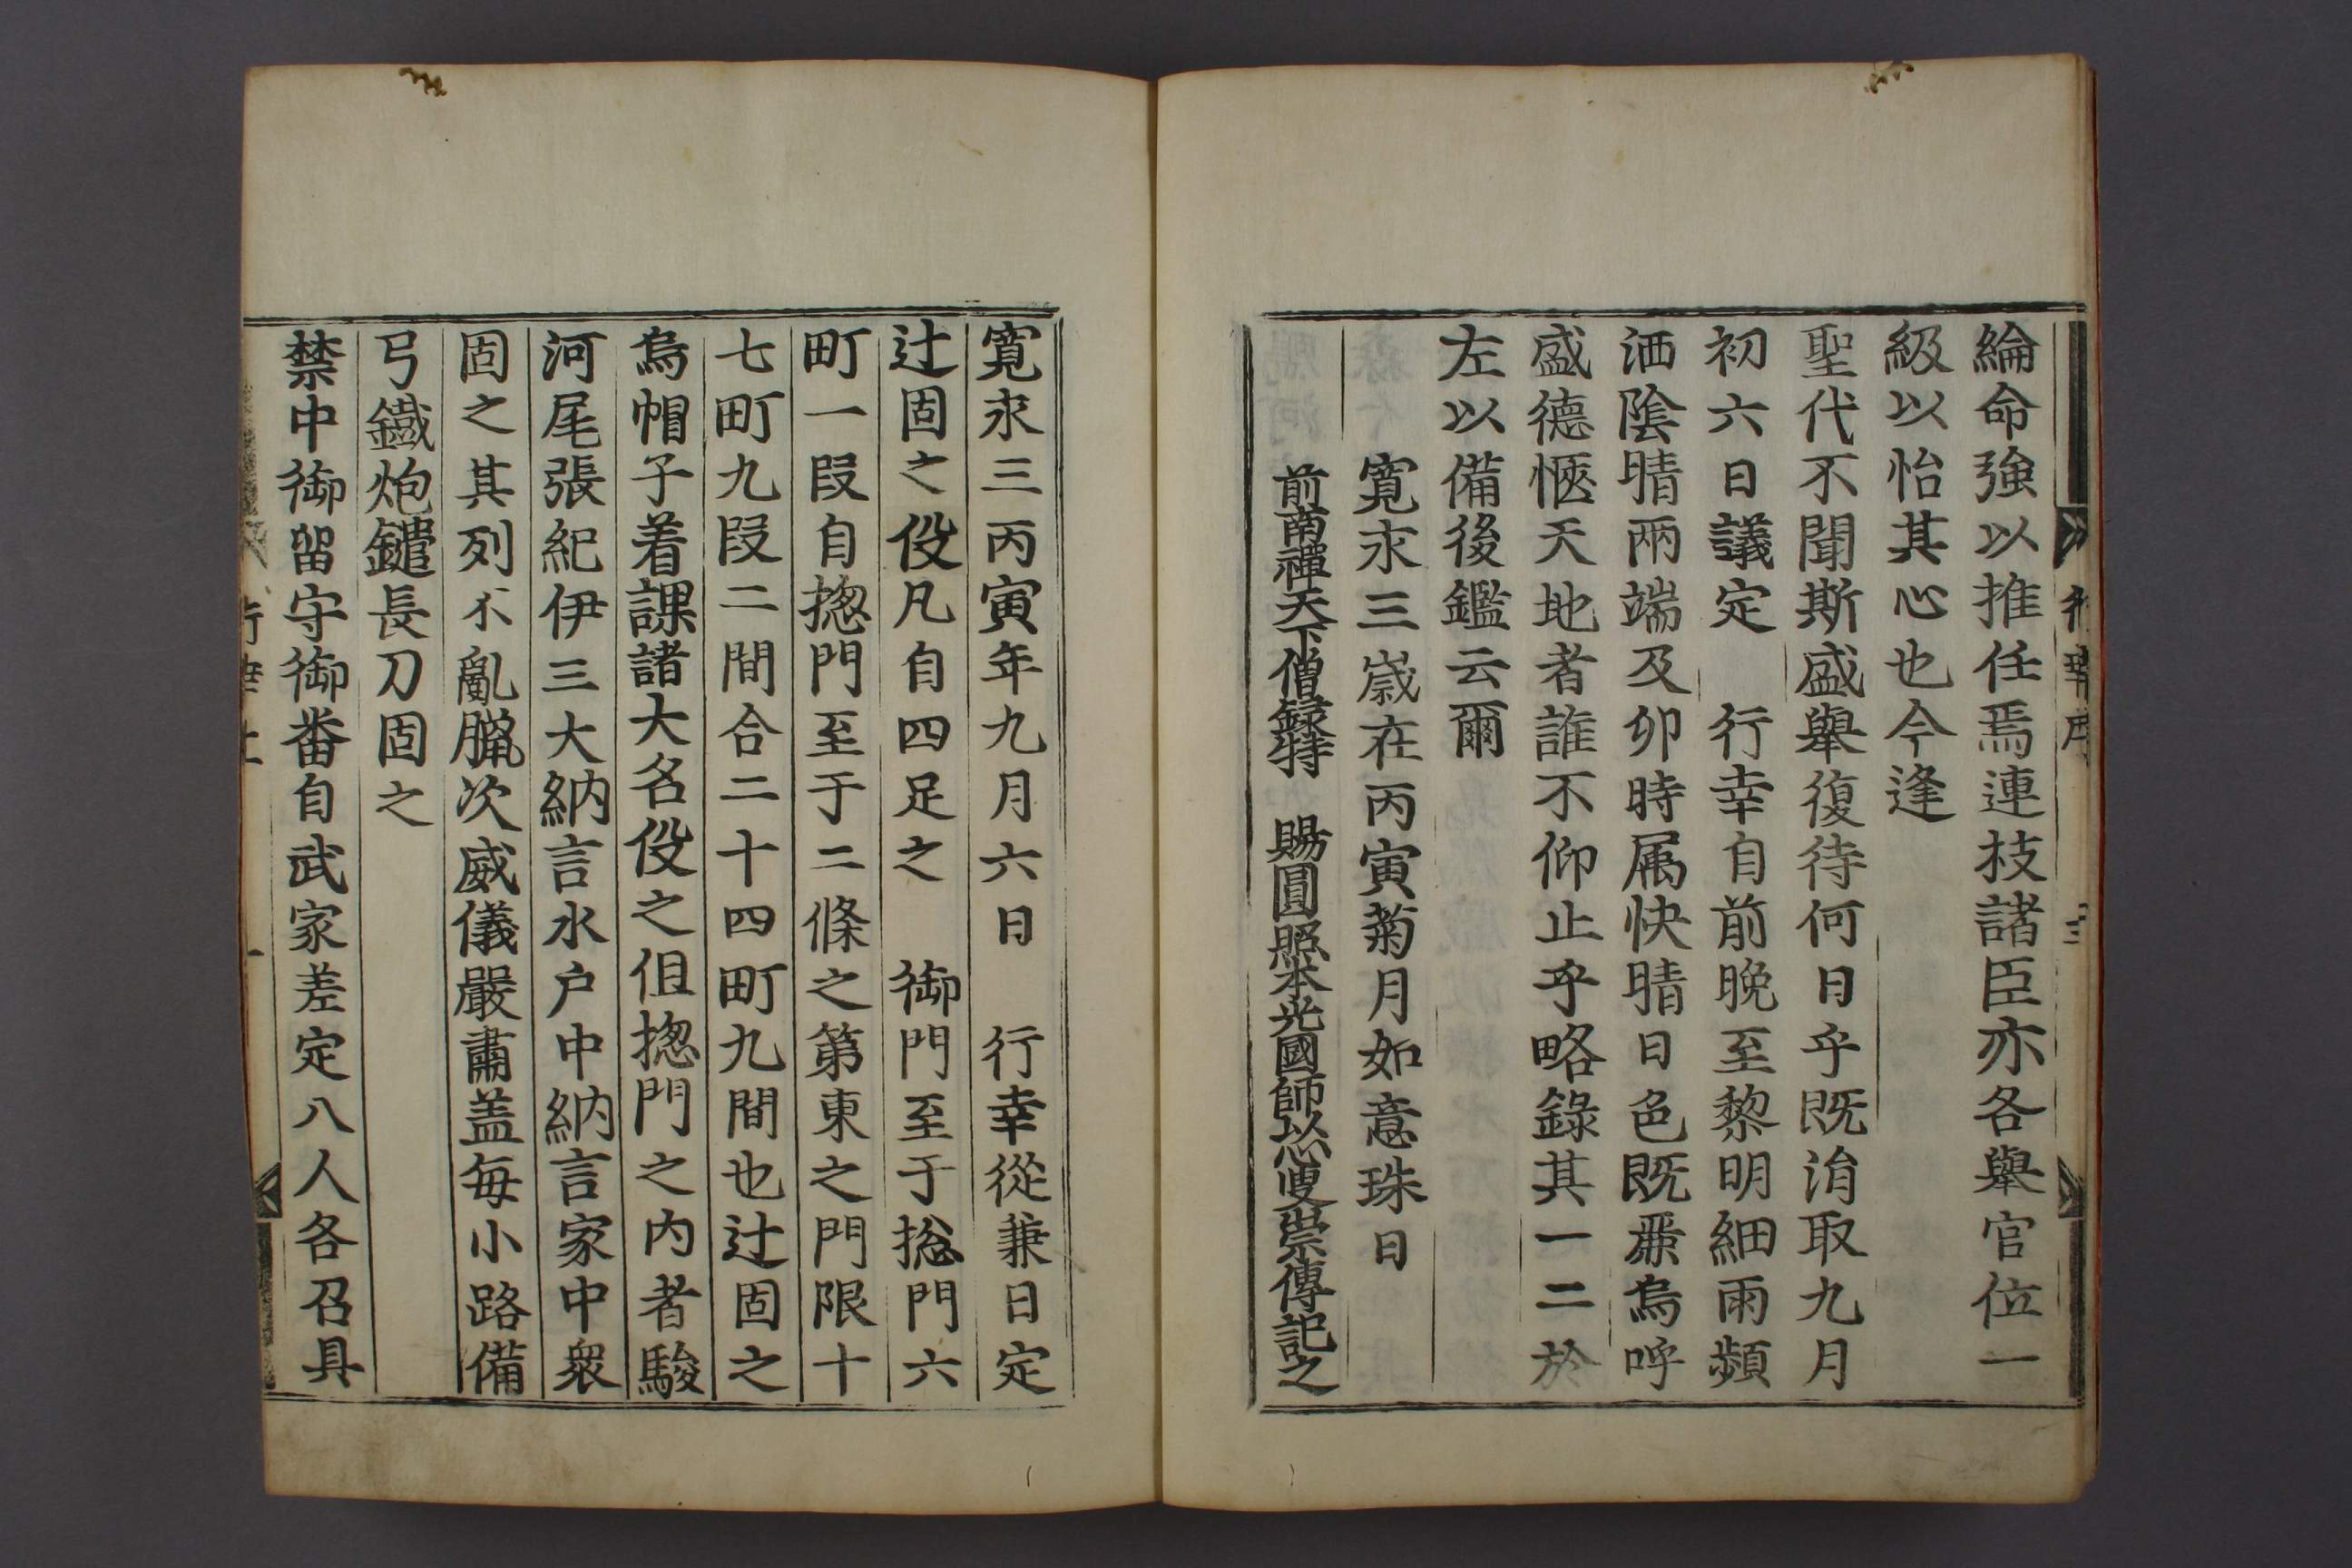 綸命強以推任焉連技諸臣亦各舉官位一
級以怡其心也今逢
聖代不聞斯盛舉復待何日乎既消取九月
初六日議定　行幸自前晩至黎明細雨頻
洒陰晴兩端及卯時属快晴日色既麗烏呼
盛德愜天地者誰不仰止乎略錄其一二於
左以備後鑑云爾
寬永三歳在丙寅菊月如意珠日
前南禪天下僧録特　賜圓照本光國師以心叟崇傳記之
寬永三丙寅年九月六日　行幸從兼日定
辻固之役凡自四足之　御門至于捴門六
町一段自捴門至于二條之第東之門限十
七町九段二間合二十四町九間也辻固之
烏帽子着課諸大名役之但捴門之内者駿
河尾張紀伊三大納言水户中納言家中衆
固之其列不亂臈次威儀嚴肅盖每小路備
弓鐵炮鑓長刀固之
禁中御留守御番自武家差定八人各召具